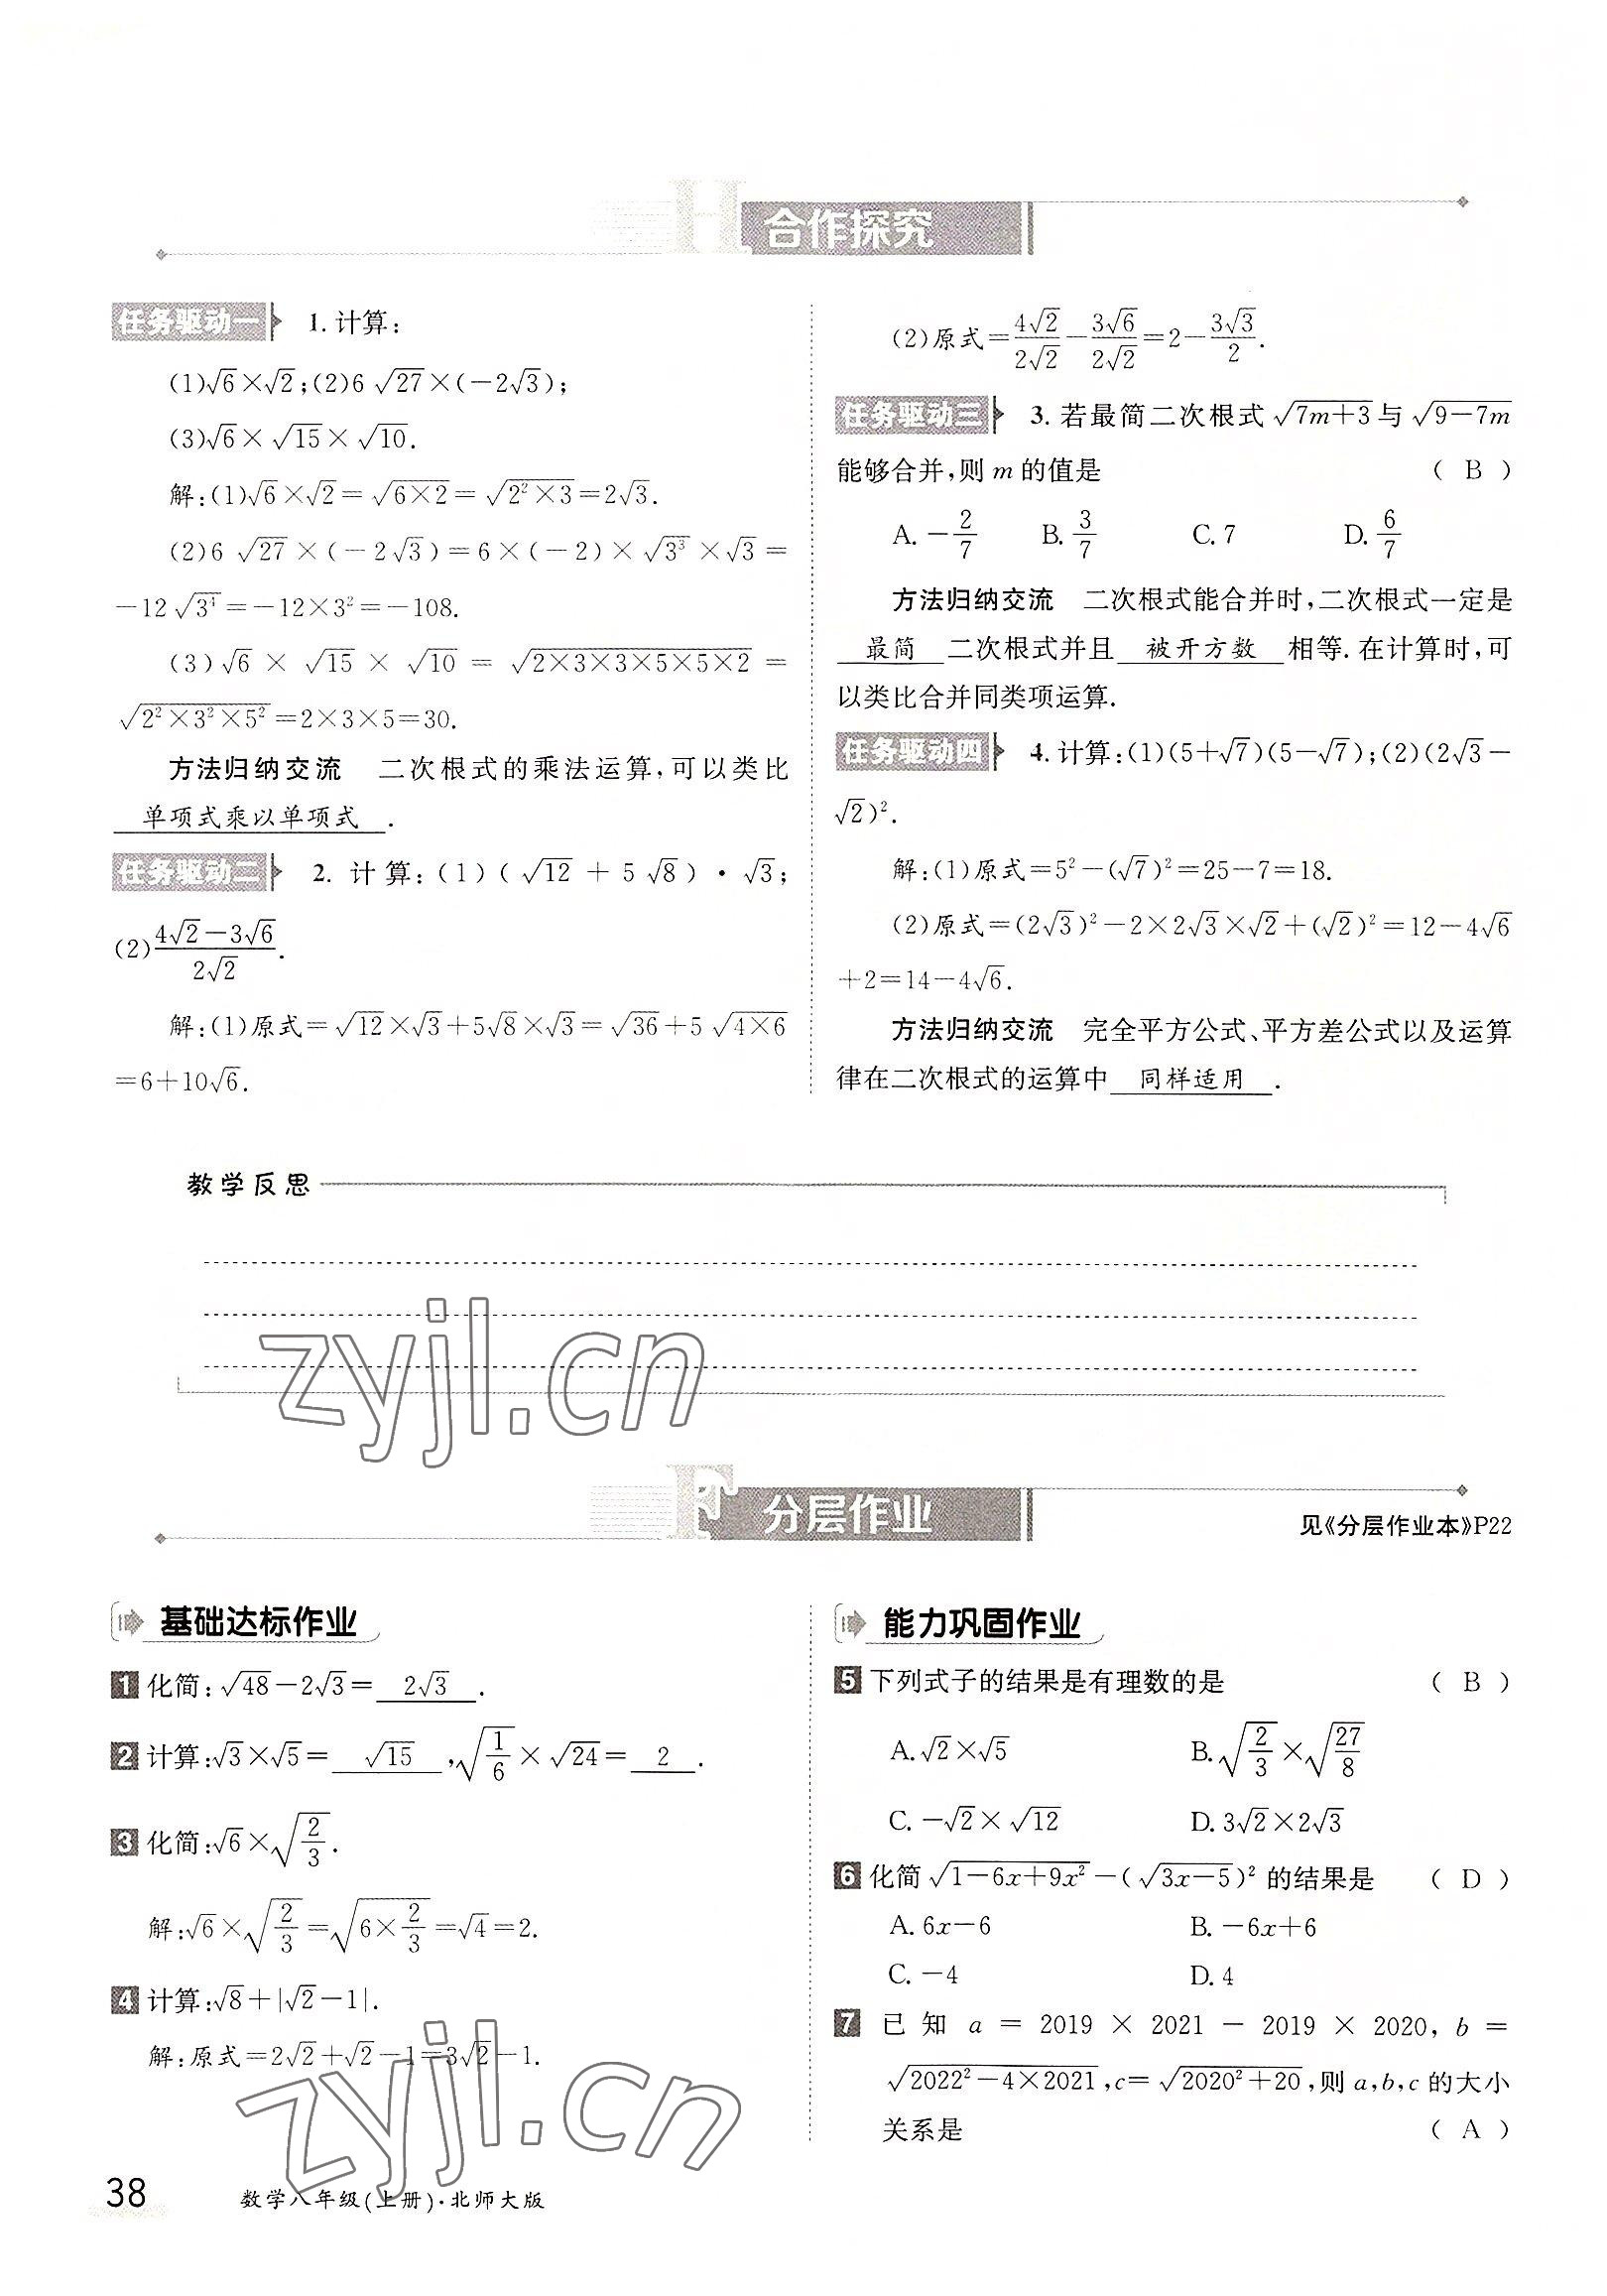 合作探究
任务驱动一 1. 计算:
(1)√6×√2;(2)6√27×(-2√3);
(3)√6×√15×√10.
解:(1)√6×√2=√(6×2)=√(2²×3)=2√3.
(2)6√27×(-2√3)=6×(-2)×√3³×√3=
-12√3⁴=-12×3²=-108.
(3)√6×√15×√10=√(2×3×3×5×5×2)=
√(2²×3²×5²)=2×3×5=30.
方法归纳交流 二次根式的乘法运算,可以类比
单项式乘以单项式.
任务驱动二 2. 计算:(1)(√12+5√8)·√3;
(2)(4√2-3√6)/(2√2).
解:(1)原式=√12×√3+5√8×√3=√36+5√(4×6)
=6+10√6.
(2)原式=(4√2)/(2√2)-(3√6)/(2√2)=2-(3√3)/2.
任务驱动三 3. 若最简二次根式√(7m+3)与√(9-7m)
能够合并,则m的值是 ( B )
A. -2/7 B. 3/7 C. 7 D. 6/7
方法归纳交流 二次根式能合并时,二次根式一定是
最简 二次根式并且 被开方数 相等. 在计算时,可
以类比合并同类项运算.
任务驱动四 4. 计算:(1)(5+√7)(5-√7);(2)(2√3-
√2)².
解:(1)原式=5²-(√7)²=25-7=18.
(2)原式=(2√3)²-2×2√3×√2+(√2)²=12-4√6
+2=14-4√6.
方法归纳交流 完全平方公式、平方差公式以及运算
律在二次根式的运算中 同样适用 .
教学反思
zyjl.cn
分层作业
见《分层作业本》P22
基础达标作业
1 化简:√48-2√3= 2√3 .
2 计算:√3×√5= √15 ,√(1/6)×√24= 2 .
3 化简:√6×√(2/3).
解:√6×√(2/3)=√(6×2/3)=√4=2.
4 计算:√8+|√2-1|.
解:原式=2√2+√2-1=3√2-1.
能力巩固作业
5 下列式子的结果是有理数的是 ( B )
A. √2×√5 B. √(2/3)×√(27/8)
C. -√2×√12 D. 3√2×2√3
6 化简√(1-6x+9x²)-(√(3x-5))²的结果是 ( D )
A. 6x-6 B. -6x+6
C. -4 D. 4
7 已知 a=2019×2021-2019×2020, b=
√(2022²-4×2021),c=√(2020²+20),则a,b,c的大小
关系是 ( A )
zyjl.cn
38 数学八年级(上册)·北师大版